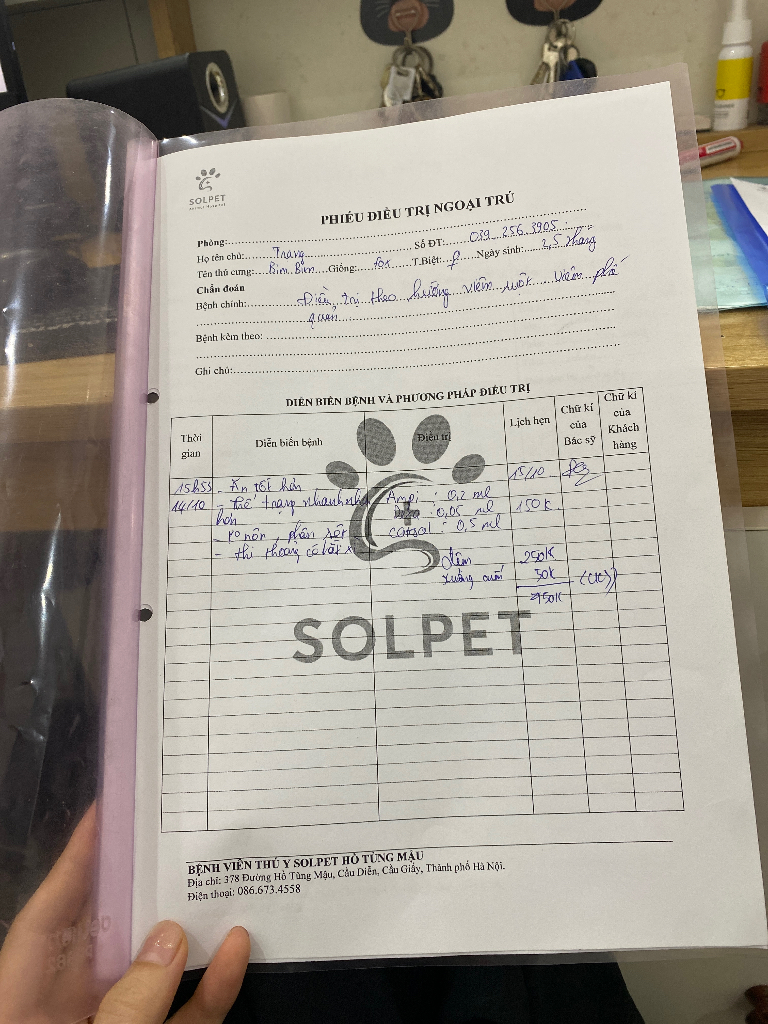 SOLPET
PHIẾU ĐIỀU TRỊ NGOẠI TRÚ
Phòng:
Họ tên chủ: Trang Số ĐT: 039 256 3905
Tên thú cưng: Bim Bim Giống: fox T.Biệt: Ngày sinh: 2,5 tháng
Chẩn đoán
Bệnh chính: Điều trị theo hướng viêm ruột viêm phế
quản
Bệnh kèm theo:
Ghi chú:
DIỄN BIẾN BỆNH VÀ PHƯƠNG PHÁP ĐIỀU TRỊ
Thời gian Diễn biến bệnh Điều trị Lịch hẹn Chữ kí của Bác sỹ Chữ kí của Khách hàng
15h55 - Ăn tốt hơn 15/10
14/10 - thể trạng nhanh nhẹn Ampi : 0,2 ml
hơn : 0,05 ml 150k
- ko nôn, phân sệt catosal : 0,5 ml
- thi thoảng có lắc
Tiêm 250K
xương 50K
(CK)
SOLPET
BỆNH VIỆN THÚ Y SOLPET HỒ TÙNG MẬU
Địa chỉ: 378 Đường Hồ Tùng Mậu, Cầu Diễn, Cầu Giấy, Thành phố Hà Nội.
Điện thoại: 086.673.4558